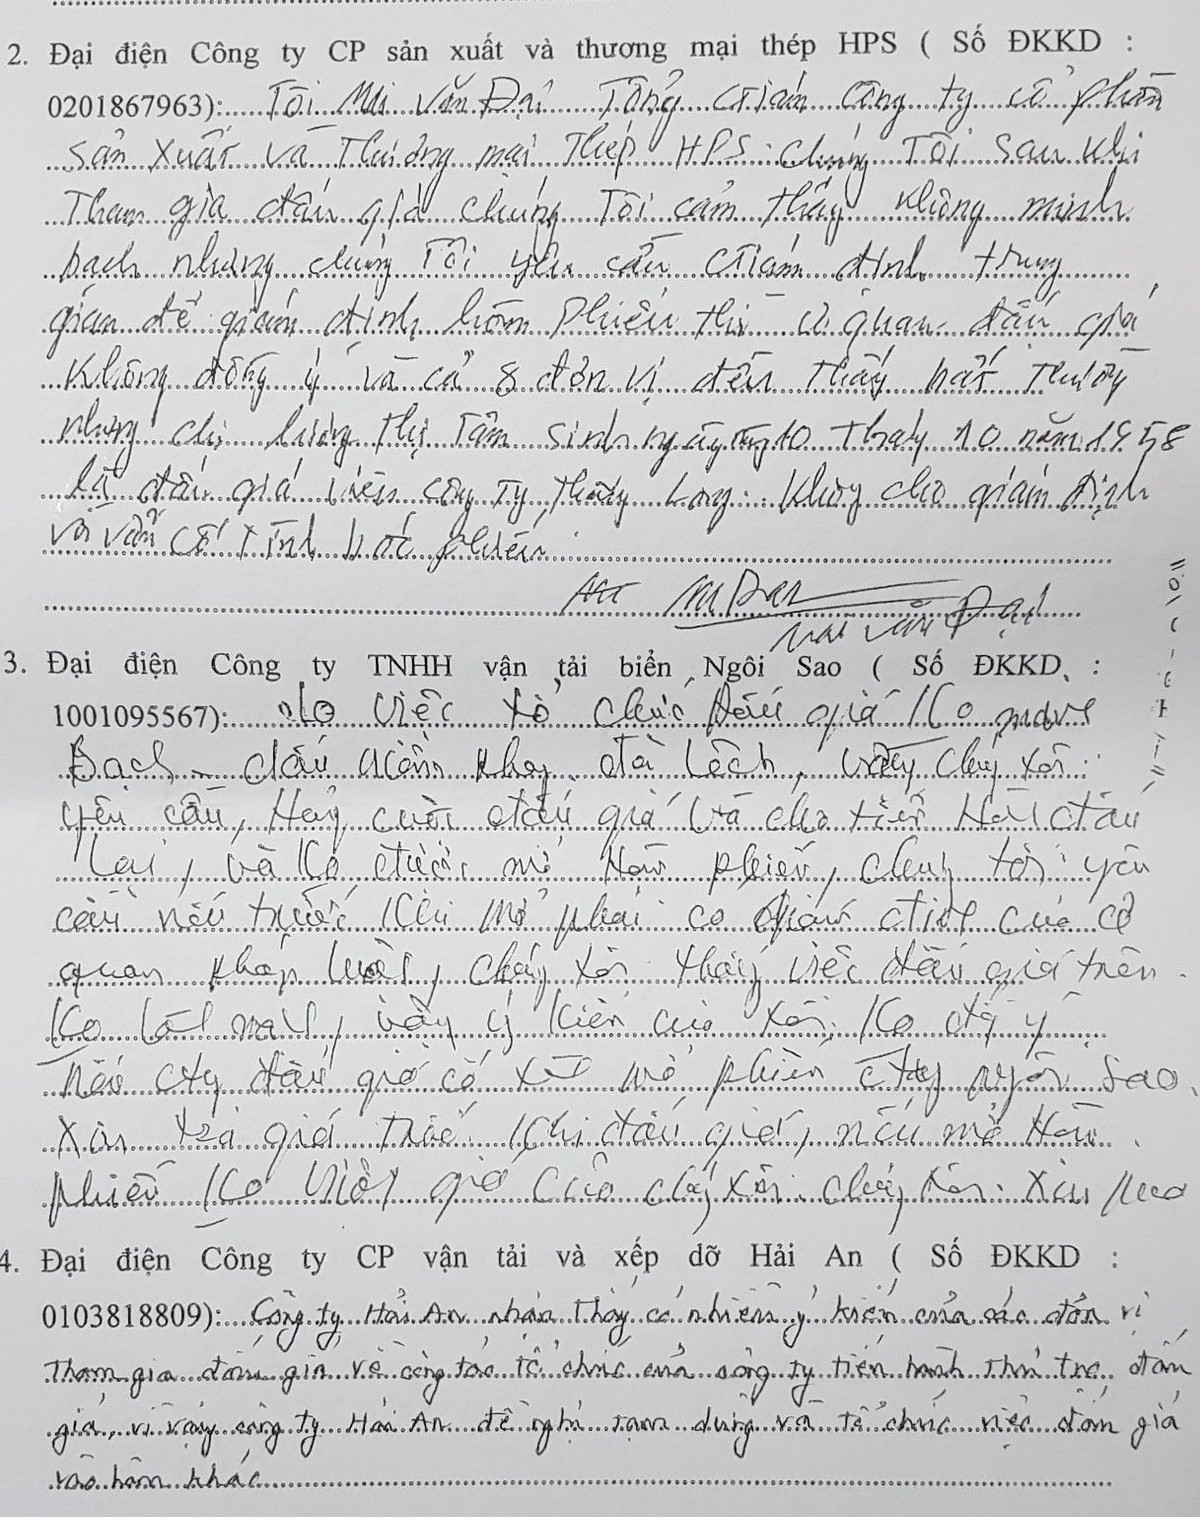 2. Đại diện Công ty CP sản xuất và thương mại thép HPS ( Số ĐKKD :
0201867963): Tôi Mai Văn Đại Tổng Giám Công ty cổ phần
sản xuất và Thương mại Thép HPS. Chúng Tôi sau khi
Tham gia đấu giá chúng Tôi cảm thấy không minh
bạch nhưng chúng Tôi yêu cầu Giám định trung
gian để giám định hòm phiếu thì cơ quan đấu giá
Không đồng ý và cả 8 đơn vị đều thấy bất thường
nhưng chị Lương Thị Tâm sinh ngày 10 Tháng 10 năm 1958
là đấu giá viên công Ty Thăng Long. Không cho giám định
và vẫn cố tình bóc phiếu
Mai Văn Đại
3. Đại diện Công ty TNHH vận tải biển Ngôi Sao ( Số ĐKKD :
1001095567): Do việc tổ chức đấu giá Ko minh
Bạch dấu niêm phong đã lệch, vậy chúng tôi
yêu cầu, Hủy cuộc đấu giá và cho tiến hành đấu
lại, và Ko được mở Hòm phiếu, chúng tôi yêu
cầu nếu trước khi mở phải có giám định của cơ
quan pháp luật, chúng tôi thấy việc đấu giá trên
Ko vậy ý kiến của tôi Ko đồng ý
Nếu cty đấu giá cố mở phiếu Cty Ngôi Sao
Xin trả giá khi đấu giá, nếu mở Hòm
phiếu Ko giá của chúng tôi. chúng tôi xin
4. Đại diện Công ty CP vận tải và xếp dỡ Hải An ( Số ĐKKD :
0103818809): Công ty Hải An nhận thấy có nhiều ý kiến của các đơn vị
tham gia đấu giá về công tác tổ chức của công ty tiến hành thủ tục đấu
giá, vì vậy công ty Hải An đề nghị tạm dừng và tổ chức việc đấu giá
vào hôm khác